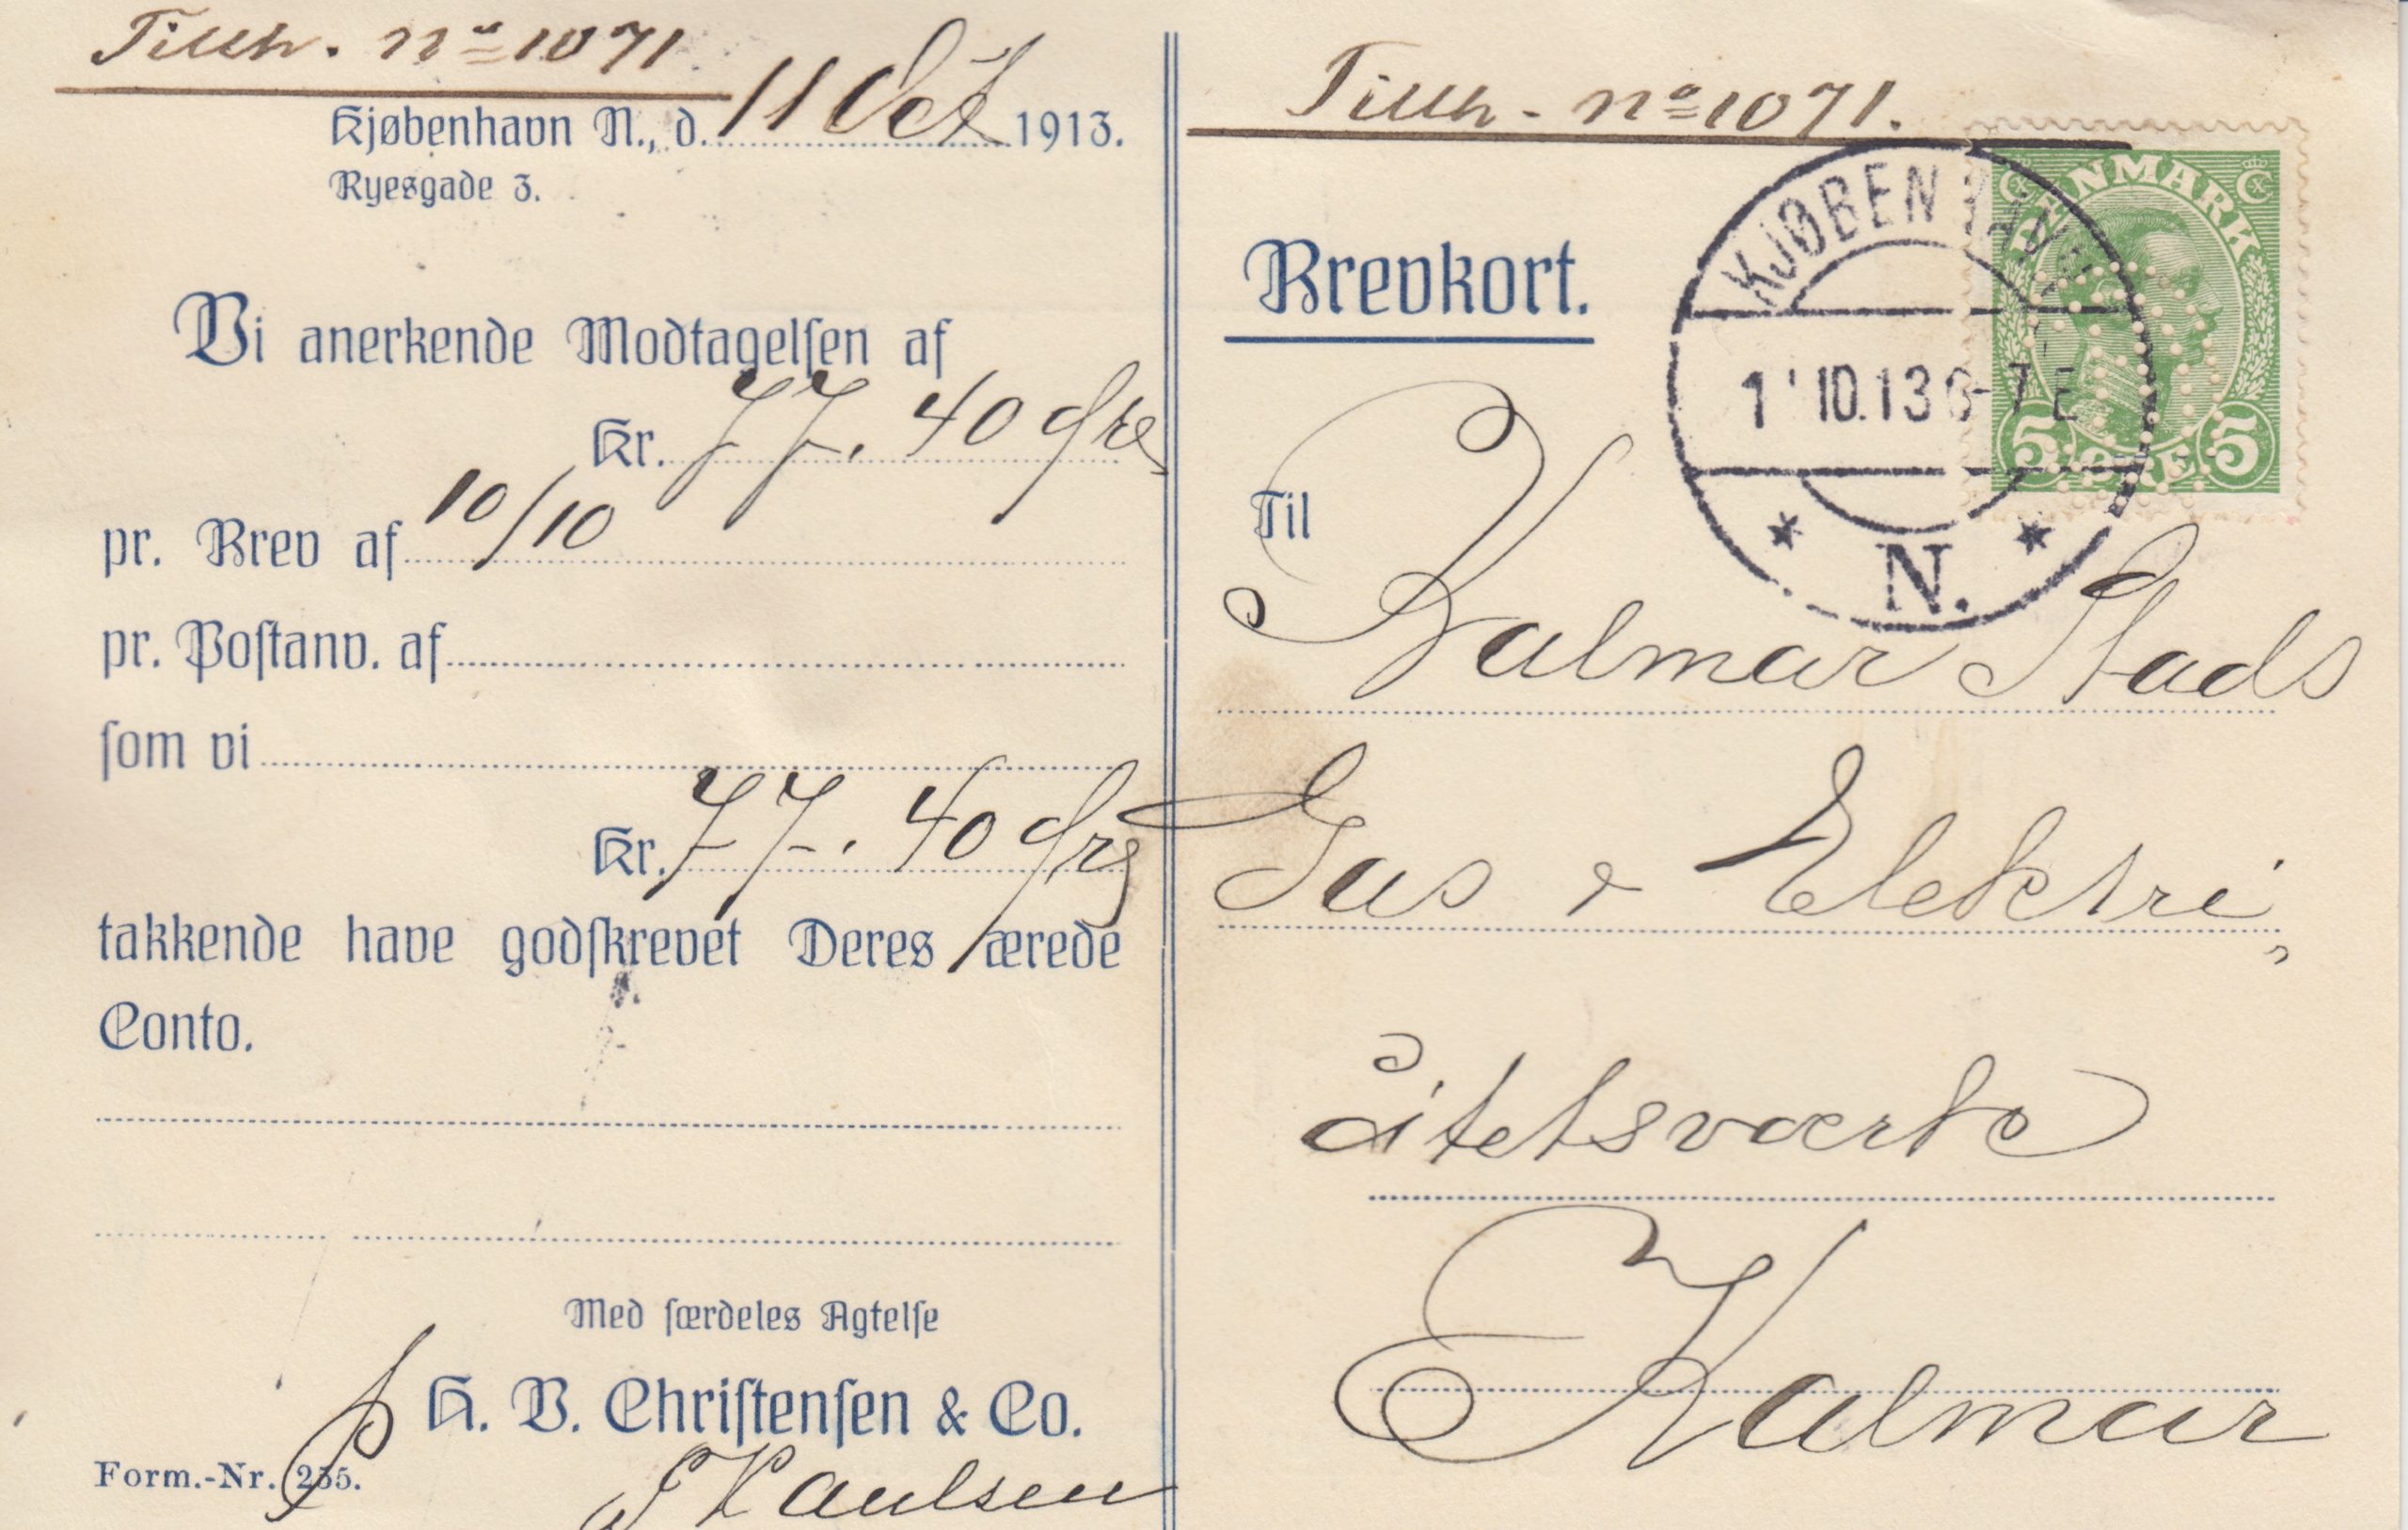 Tillh. No 1071.
Kjøbenhavn N., d. 11 Oct 1913.
Ryesgade 3.
Vi anerkende Modtagelsen af
Kr. 77. 40 Øre
pr. Brev af 10/10
pr. Postanv. af
som vi
Kr. 77. 40 Øre
takkende have godskrevet Deres ærede
Conto.
Med særdeles Agtelse
H. V. Christensen & Co.
Form.-Nr. 255.
Tillh - No 1071.
DENMARK
5 ØRE 5
KJØBENHAVN
1 10.13 6-7 E
N.
Brevkort.
Til
Kalmar Stads
Gas & Elektri
citetsværk
Kalmar